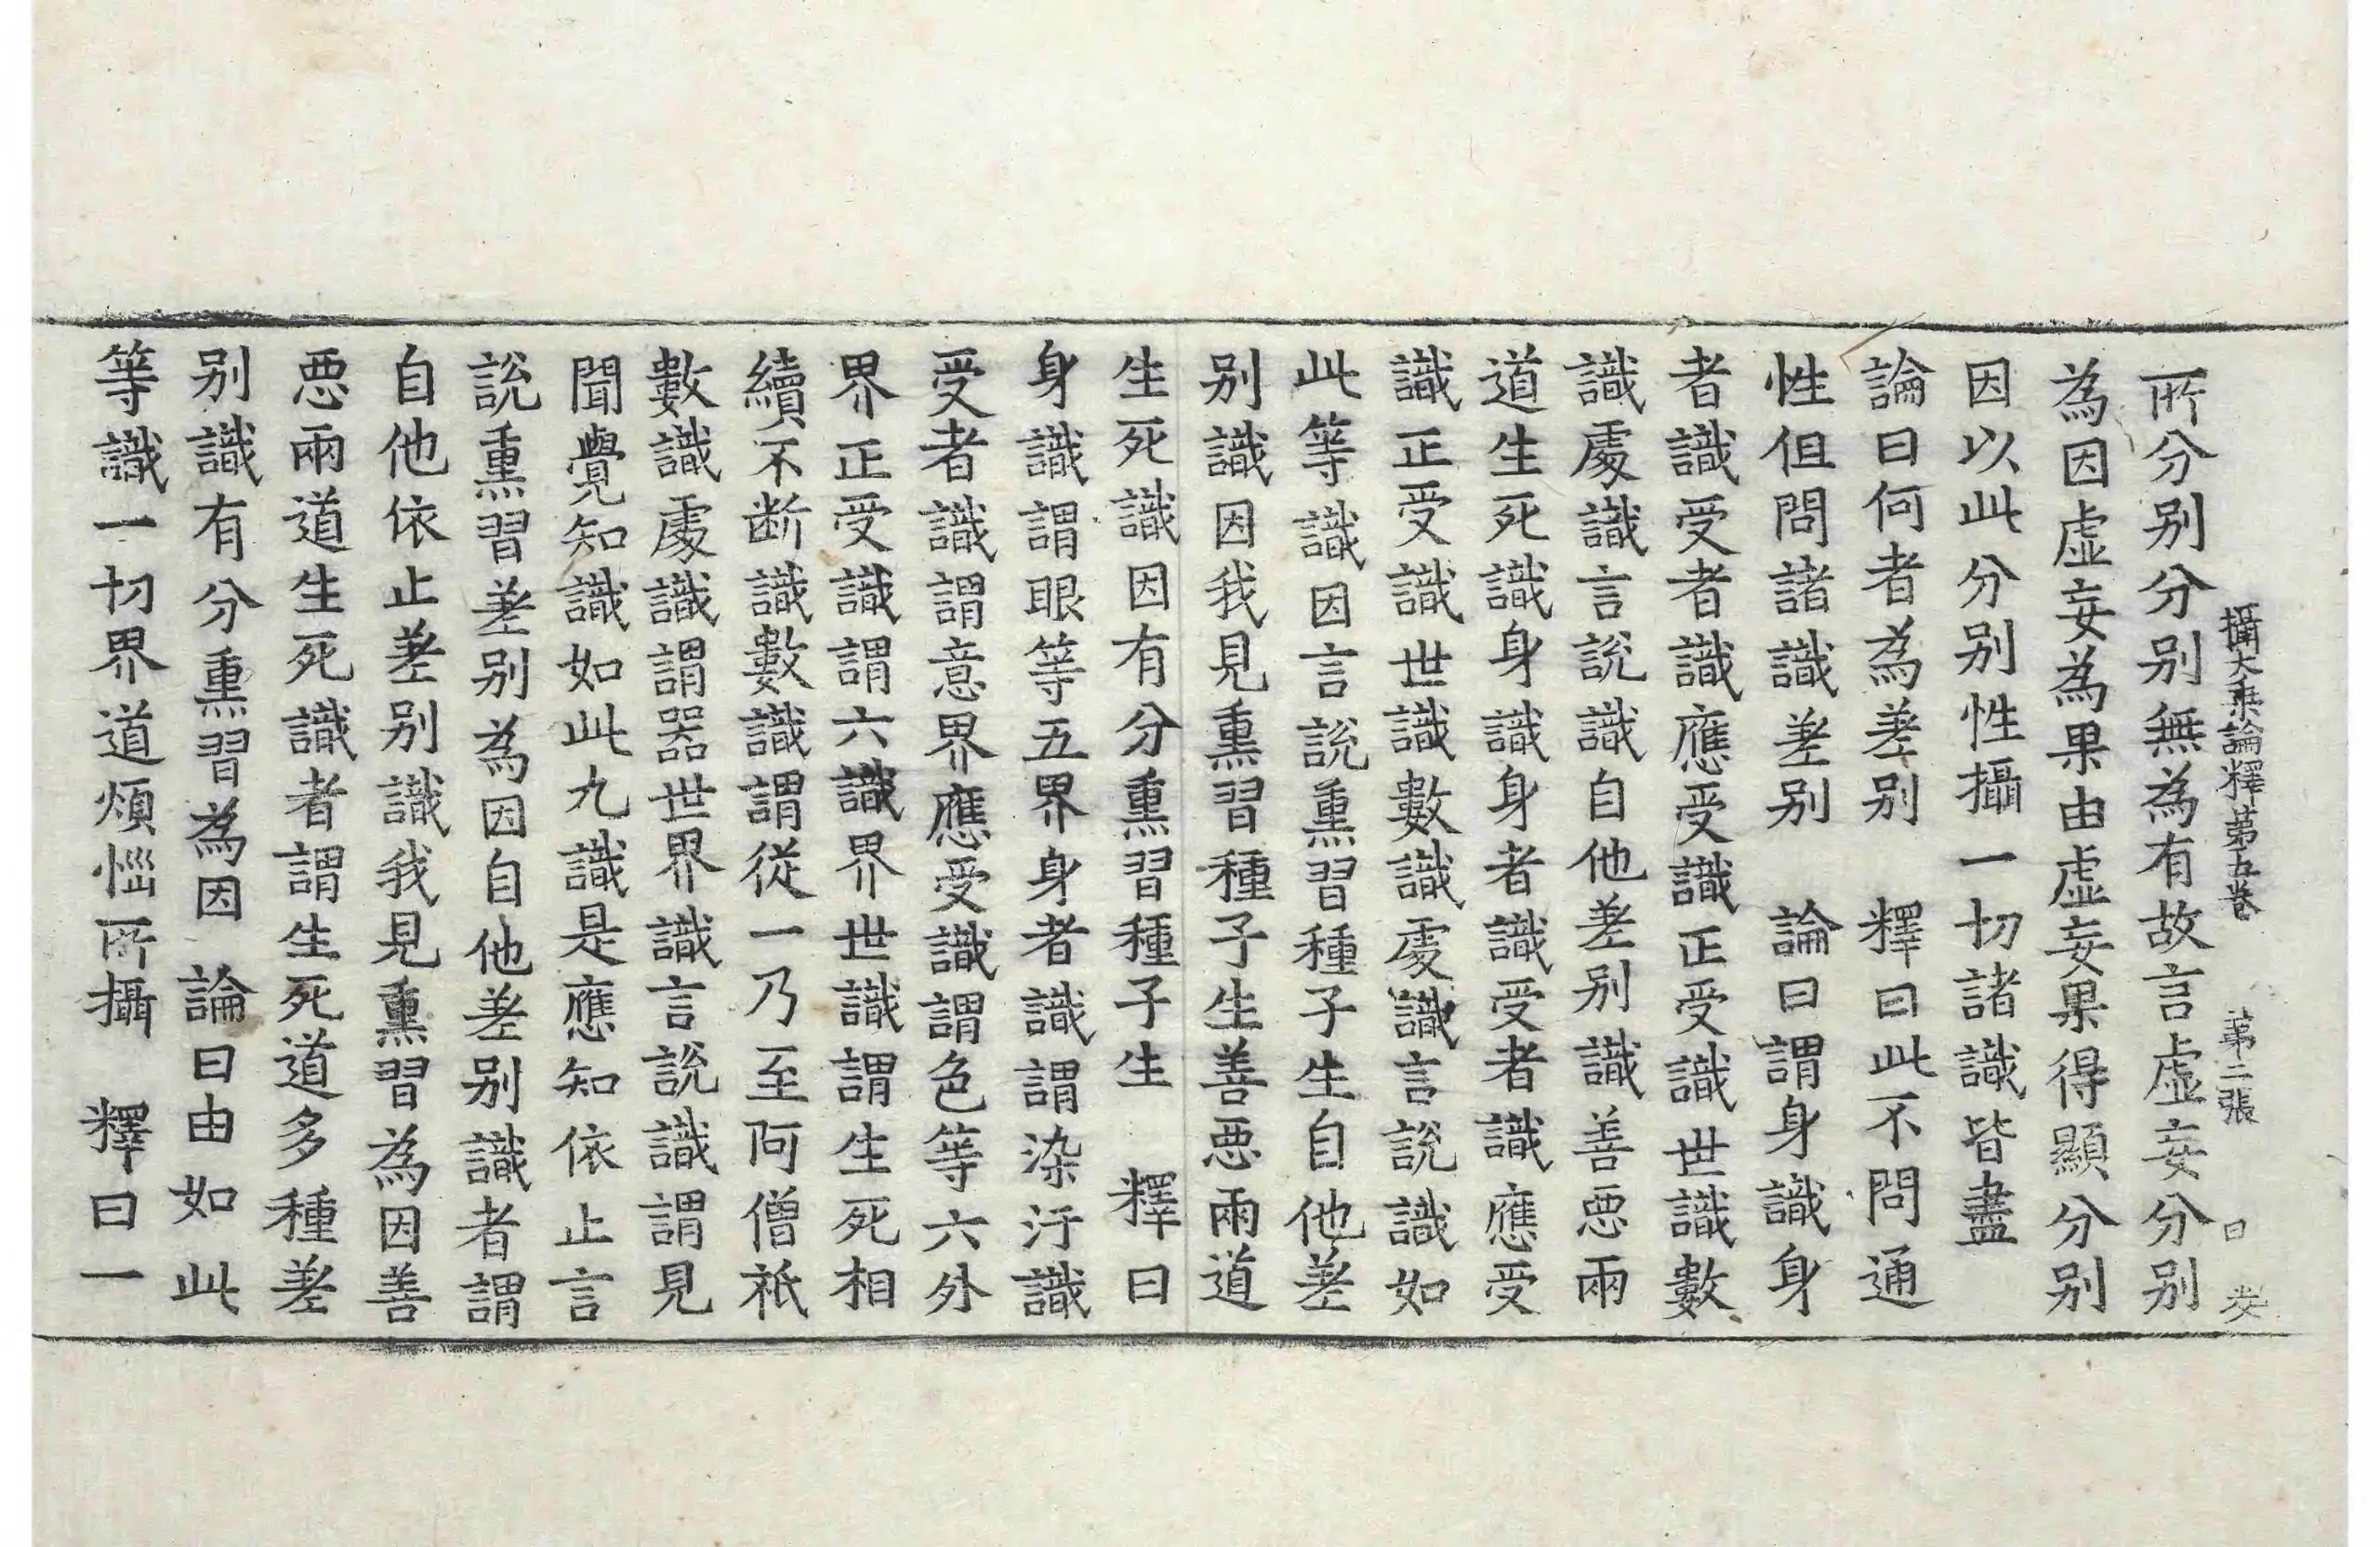 攝大乗論釋第五卷 第二張 日
所分别分别無為有故言虛妄分别
為因虛妄為果由虛妄果得顯分别
因以此分别性攝一切諸識皆盡
論曰何者為差别 釋曰此不問通
性但問諸識差别 論曰謂身識身
者識受者識應受識正受識世識數
識處識言說識自他差别識善惡兩
道生死識身識身者識受者識應受
識正受識世識數識處識言說識如
此等識因言說熏習種子生自他差
别識因我見熏習種子生善惡兩道
生死識因有分熏習種子生 釋曰
身識謂眼等五界身者識謂染汙識
受者識謂意界應受識謂色等六外
界正受識謂六識界世識謂生死相
續不断識數識謂從一乃至阿僧祇
數識處識謂器世界識言說識謂見
聞覺知識如此九識是應知依止言
說熏習差别為因自他差别識者謂
自他依止差别識我見熏習為因善
惡兩道生死識者謂生死道多種差
别識有分熏習為因 論曰由如此
等識一切界道煩惱所攝 釋曰一